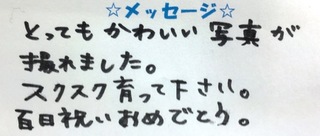 ☆メッセージ☆
とってもかわいい写真が
撮れました。
スクスク育って下さい。
百日祝いおめでとう。